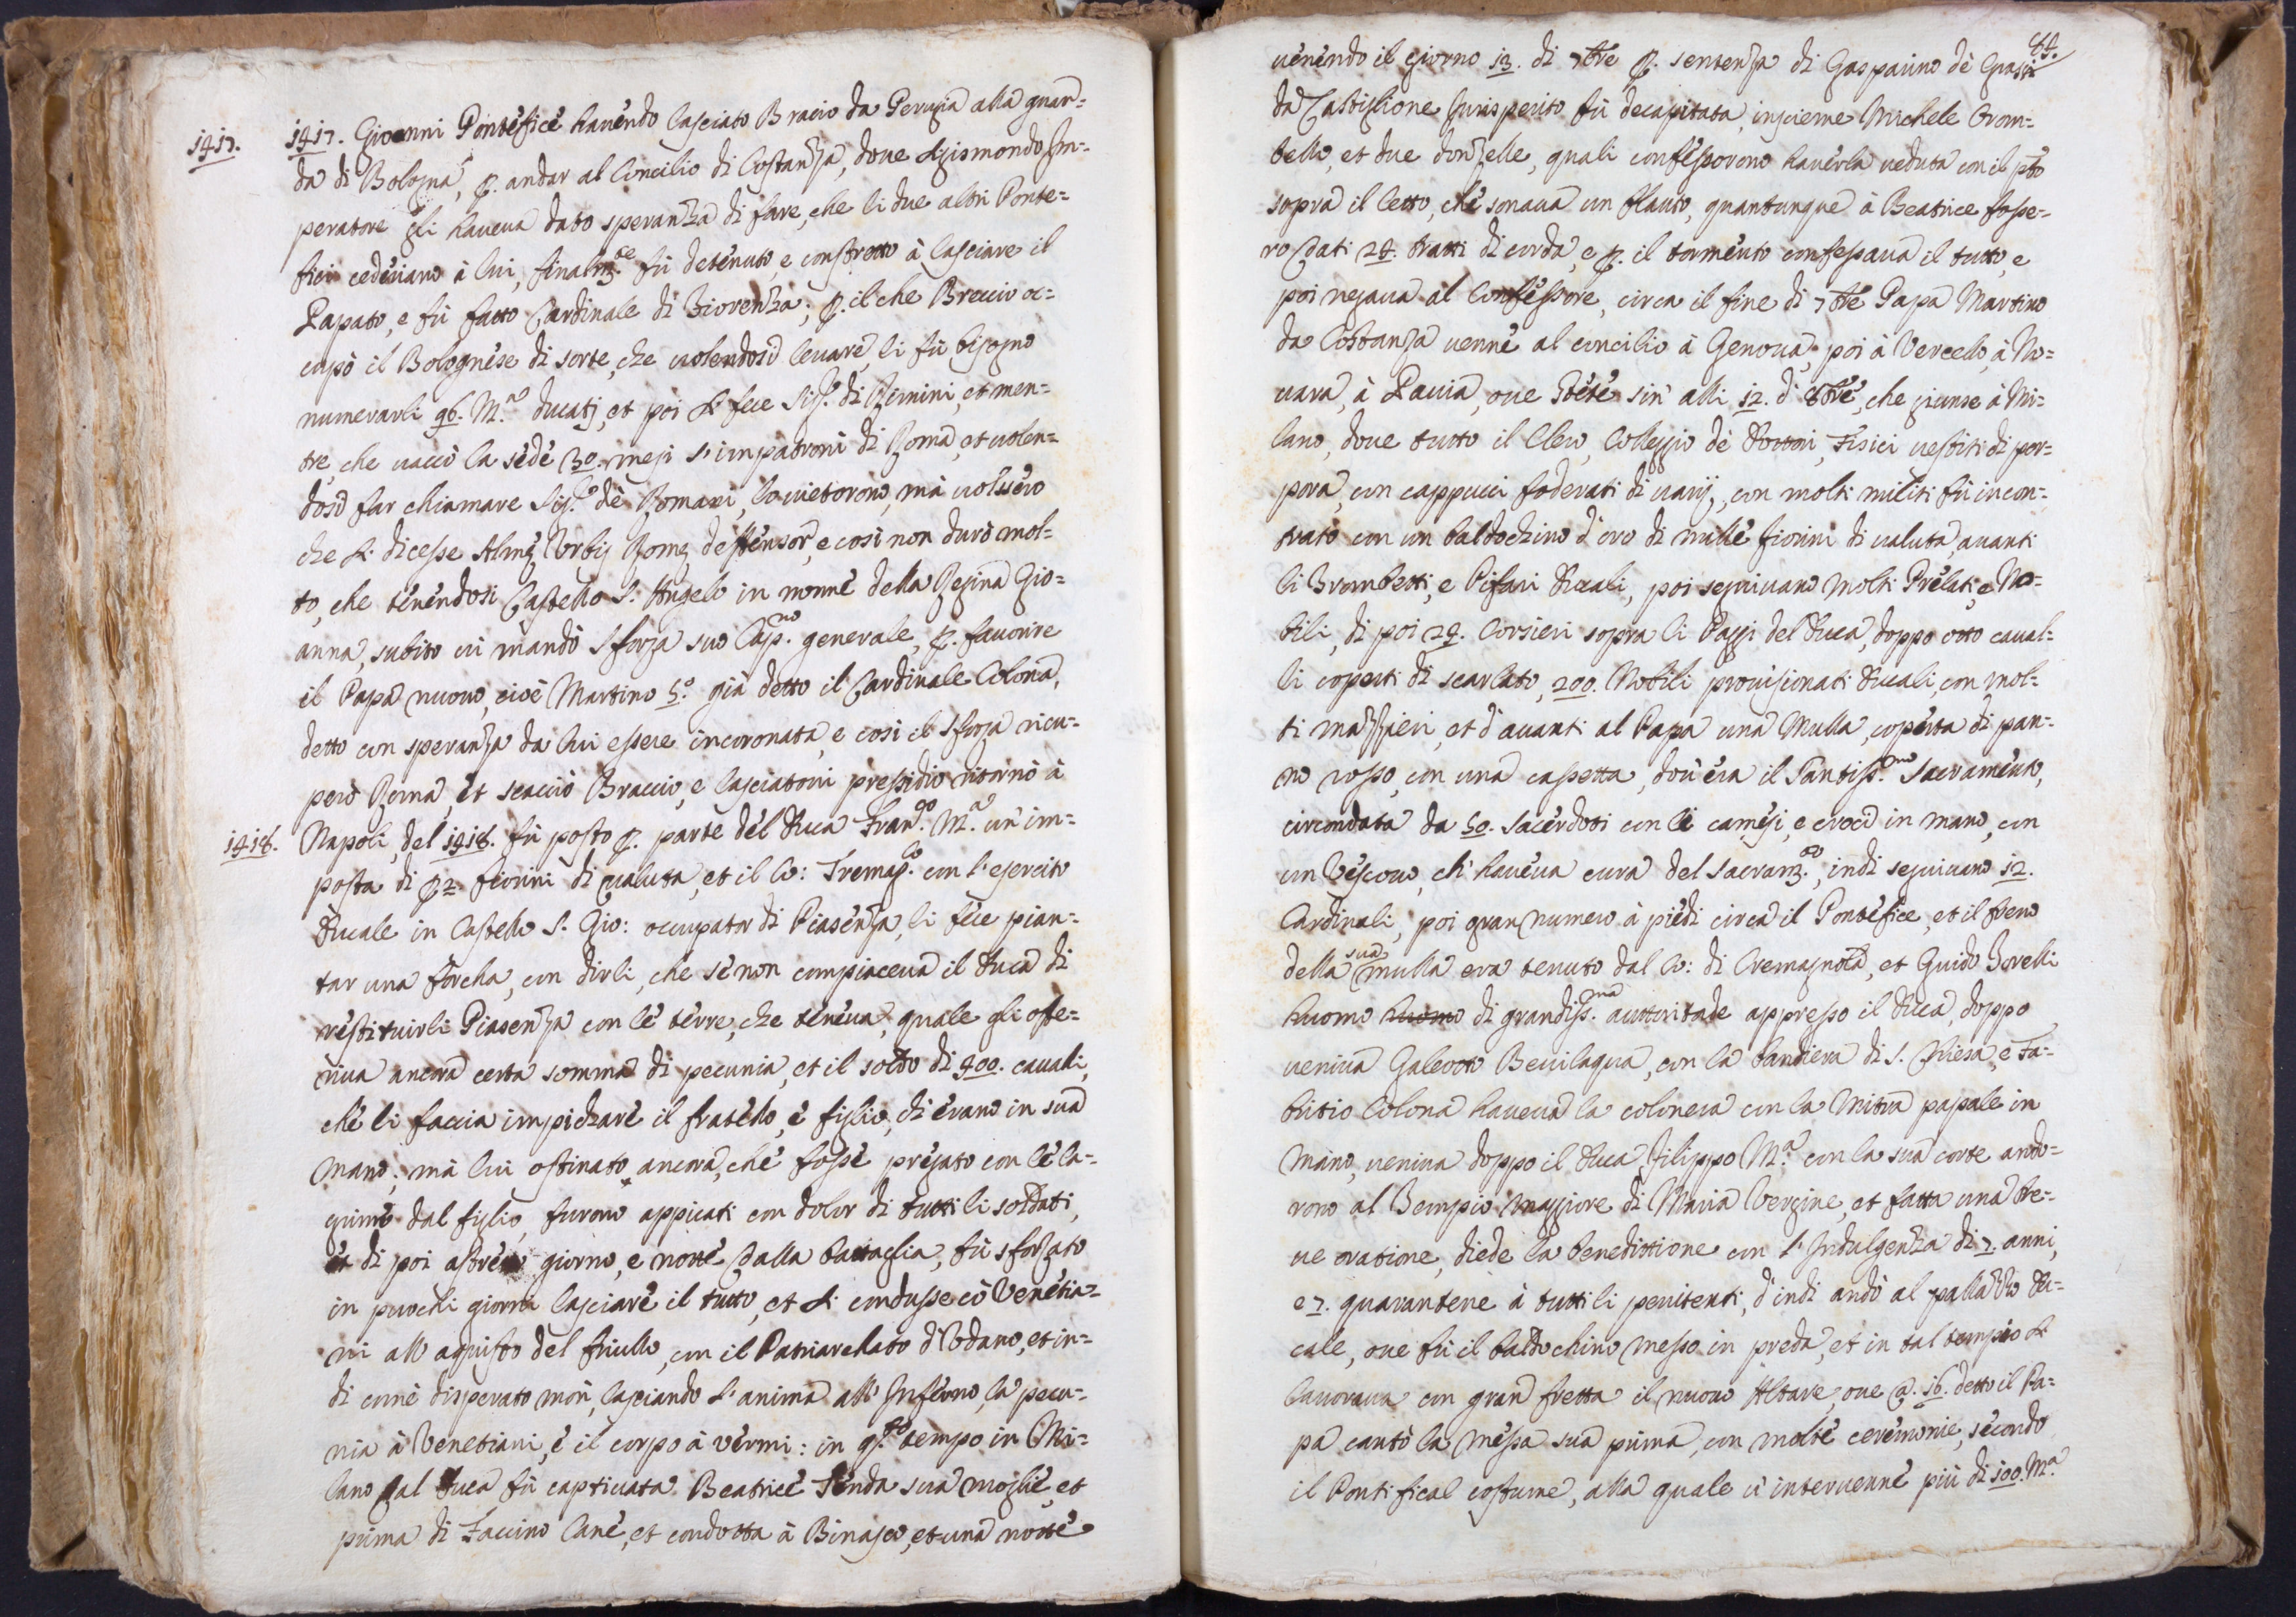 1417. 1417. Giovanni Pontefice havendo lasciato Bracio da Perugia alla guar=
da di Bologna, p. andar al Concilio di Costanza, doue Sigismondo Im=
peratore gli haueua dato speranza di fare, che li due altri Ponte=
fici cedeuano à lui, finalm.te fù detenuto, e constretto à lasciare il
Papato, e fù fatto Cardinale di Fiorenza; p. il che Breccio oc=
cupò il Bolognese di sorte, che uolendosi leuare, li fù bisogno
numerarli 96. M.a ducatj, et poi si fece Sig.r di Rimini, et men=
tre che uaccò la sede 30. mesi s'impatronì di Roma, et uolen=
dosi far chiamare Sig.re de Romani, lo uietorono, mà uolsero
che si dicesse Almę Vrbis Romę deffensor, e così non durò mol=
to, che tenendosi Castello S. Angelo in nome della Regina Gio=
anna, subito ui mandò Sforza suo Cap.no generale, p. fauorire
il Papa nuouo, cioè Martino 5.o già detto il Cardinale Colona,
detto con speranza da lui essere incoronata, e così il Sforza ricu=
però Roma, et scacciò Braccio, e lasciatoui pressidio ritornò à
1418. Napoli, del 1418. fù posto p. parte del Duca Fran.co M.a un' im=
posta di 82. fiorini di ualuta, et il Co: Cremag.la con l'esercito
Ducale in Castello S. Gio: occupator di Piasenza, li fece pian=
tar una forcha, con dirli, che se non compiaceua il Duca di
restituirli Piasenza con le terre, che teneua, quale gli offe=
riua ancora certa somma di pecunia, et il soldo di 400. caualli,
che li faccia impichare il fratello, e figlio, ch' erano in sua
mano; mà lui ostinato ancora, che fosse pregato con le la=
grime dal figlio, furono appicati con dolor di tutti li soldati,
et di poi astretto giorno, e notte dalla battaglia, fù sforzato
in puochi giorni lasciare il tutto, et si condusse cõ Venetia=
ni all' aquisto del friullo, con il Patriarchato d'Vdano, et in=
di come disperato morì, lasciando l'anima all' Inferno, la pecu=
nia à Venetiani, e il corpo à vermi: in q.sto tempo in Mi=
lano dal Duca fù captiuata Beatrice Tenda sua moglie, et
prima di Faccino Cane, et condotta à Binasco, et una notte
84.
uenendo il giorno 13. di 7bre p. sentenza di Gaspaiino de Grassi
da Castiglione Jurisperito fù decapitata, insieme Michele Orom=
bello, et due donzelle, quali confessorono hauerla ueduta con il pto
sopra il letto, che sonaua un flauto, quantunque à Beatrice fosse=
ro dati 24. tratti di corda, e p. il tormento confessaua il tutto, e
poi negaua al Confessore, circa il fine di 7bre Papa Martino
da Costanza uenne al concilio à Genoua, poi à Vercello, à No=
uara, à Pauia, oue stete sin' alli 12. d' 8bre, che giunse à Mi=
lano, doue tutto il Clero, Colleggio de Dottori, Fisici uestiti di por=
pora, con cappucci foderati di uarij, con molti militi fù incon=
trato con un baldochino d'oro di mille fiorini di ualuta, auanti
li Trombetti, e Pifari Ducali, poi seguiuano molti Prelati, e No=
bili, di poi 24. Corsieri sopra li Paggi del Duca, doppo otto caual=
li coperti di scarlato, 200. Nobili prouisionati Ducali, con mol=
ti mazzieri, et d'auanti al Papa una Mulla, coperta di pan=
no rosso, con una cassetta, dou'era il Santiss.mo Sacramento,
circondata da 50. Sacerdoti con li camesi, e croci in mano, con
un Vescouo, ch' haueua cura del Sacram.to, indi seguiuano 12.
Cardinali, poi gran numero à piedi circa il Pontefice, et il freno
della sua mulla era tenuto dal Co: di Cremagnola, et Guido Torelli
huomo huomo di grandiss.ma auttoritade appresso il Duca, doppo
ueniua Galeotto Beuilaqua, con la bandiera di S. Chiesa, e Fa=
britio Colona haueua la colonna con la Mitria papale in
mano, ueniua doppo il Duca Filippo M.a con la sua corte, ando=
rono al Tempio maggiore di Maria Vergine, et fatta una bre=
ue oratione, diede la benedittione con l'Indulgenza di 7. anni,
e 7. quarantene à tutti li penitenti, d'indi andò al pallazzo Du=
cale, oue fù il baldochino messo in preda, et in tal tempio si
lauoraua con gran fretta il nuouo Altare, oue a. 16. detto il Pa=
pa cantò la messa sua prima, con molte ceremonie, secondo
il Pontifical costume, alla quale ui interuenne più di 100. M.a